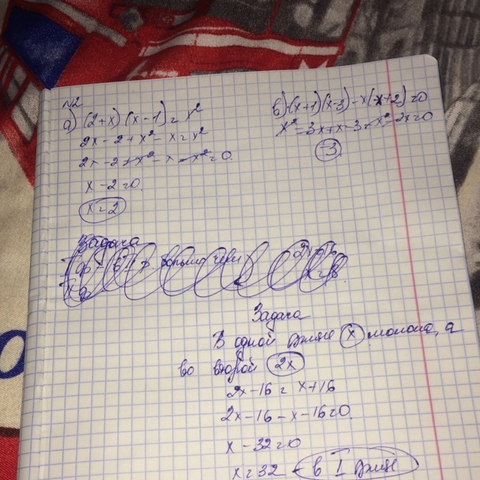 №2
а) (2+x)(x-1)=x²
2x-2+x²-x=x²
2x-2+x²-x-x²=0
x-2=0
x=2
в) (x+1)(x-3)-x(x+2)=0
x²-3x+x-3-x²-2x=0
-3
Задача
Задача
В одной было x молока, а
во второй 2x
2x-16=x+16
2x-16-x-16=0
x-32=0
x=32 - в I